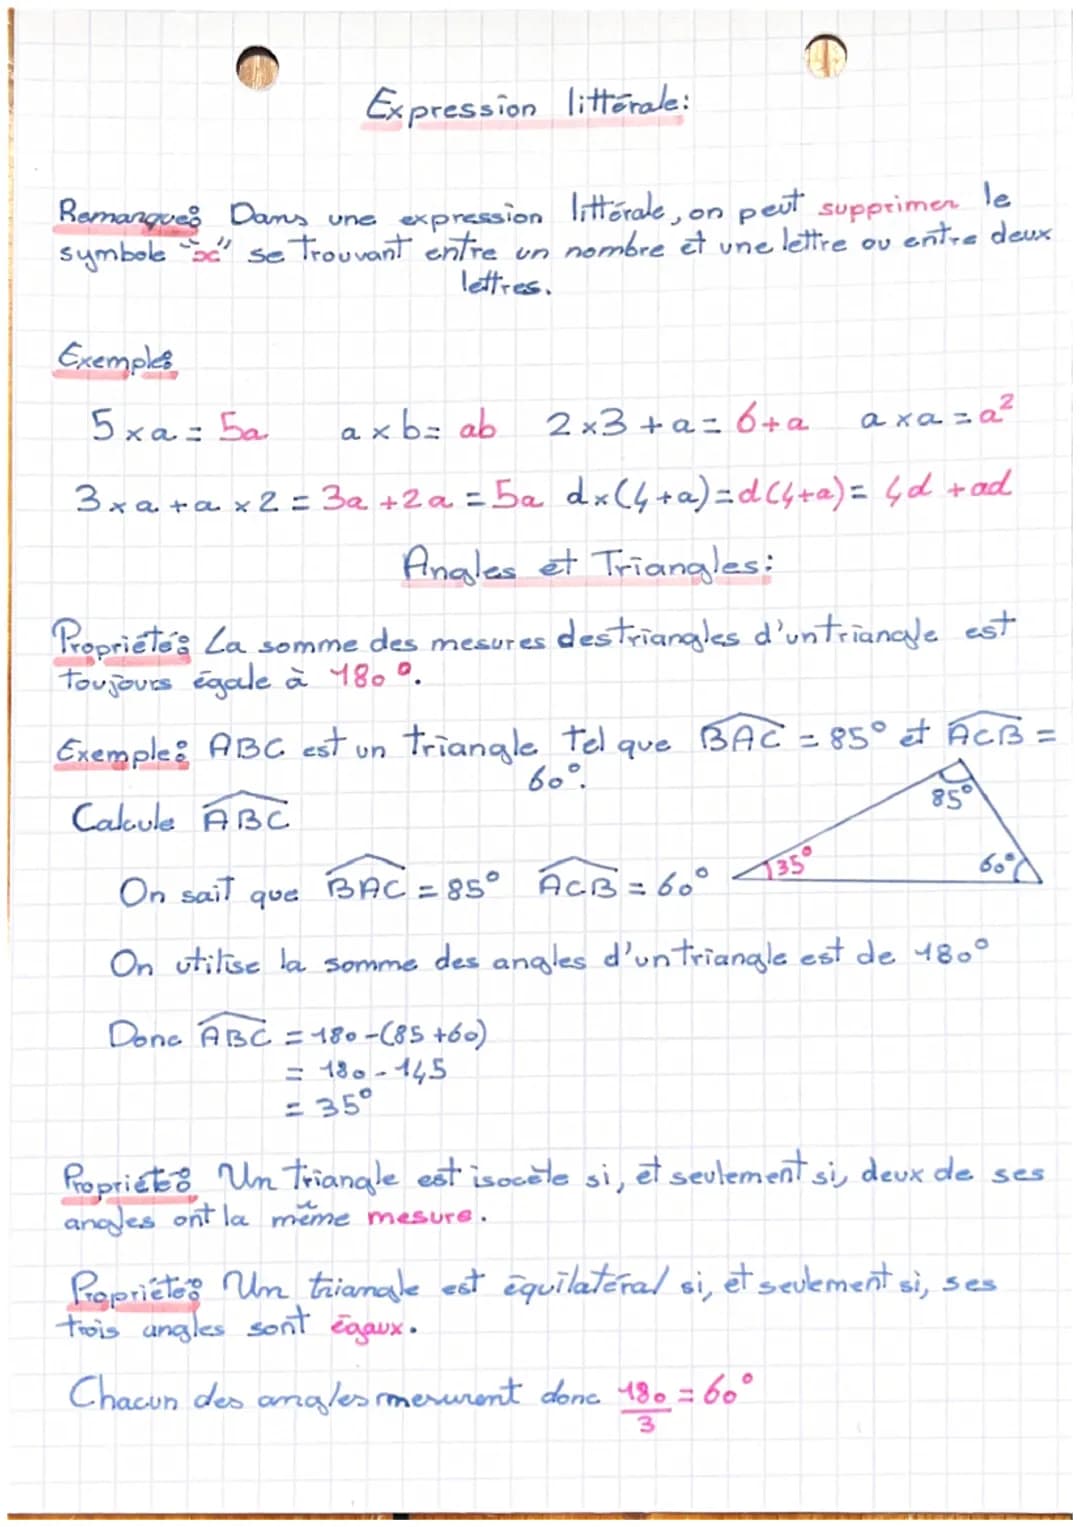 Expression littérale:
Remarque: Dans une expression littérale, on peut supprimer le
symbole "x" se trouvant entre un nombre et une lettre ou entre deux
lettres.
Exemple:
5 × a = 5a a × b = ab 2 × 3 + a = 6 + a a × a = a²
3 × a + a × 2 = 3a + 2a = 5a d × (4 + a) = d(4 + a) = 4d + ad
Angles et Triangles:
Propriété: La somme des mesures des triangles d'un triangle est
toujours égale à 180°.
Exemple: ABC est un triangle tel que \widehat{BAC} = 85° et \widehat{ACB} =
60°.
Calcule \widehat{ABC}
85°
35° 60°
On sait que \widehat{BAC} = 85° \widehat{ACB} = 60°
On utilise la somme des angles d'un triangle est de 180°
Donc \widehat{ABC} = 180 - (85 + 60)
= 180 - 145
= 35°
Propriété: Un triangle est isocèle si, et seulement si, deux de ses
angles ont la même mesure.
Propriété: Un triangle est équilatéral si, et seulement si, ses
trois angles sont égaux.
Chacun des angles mesurent donc 180/3 = 60°